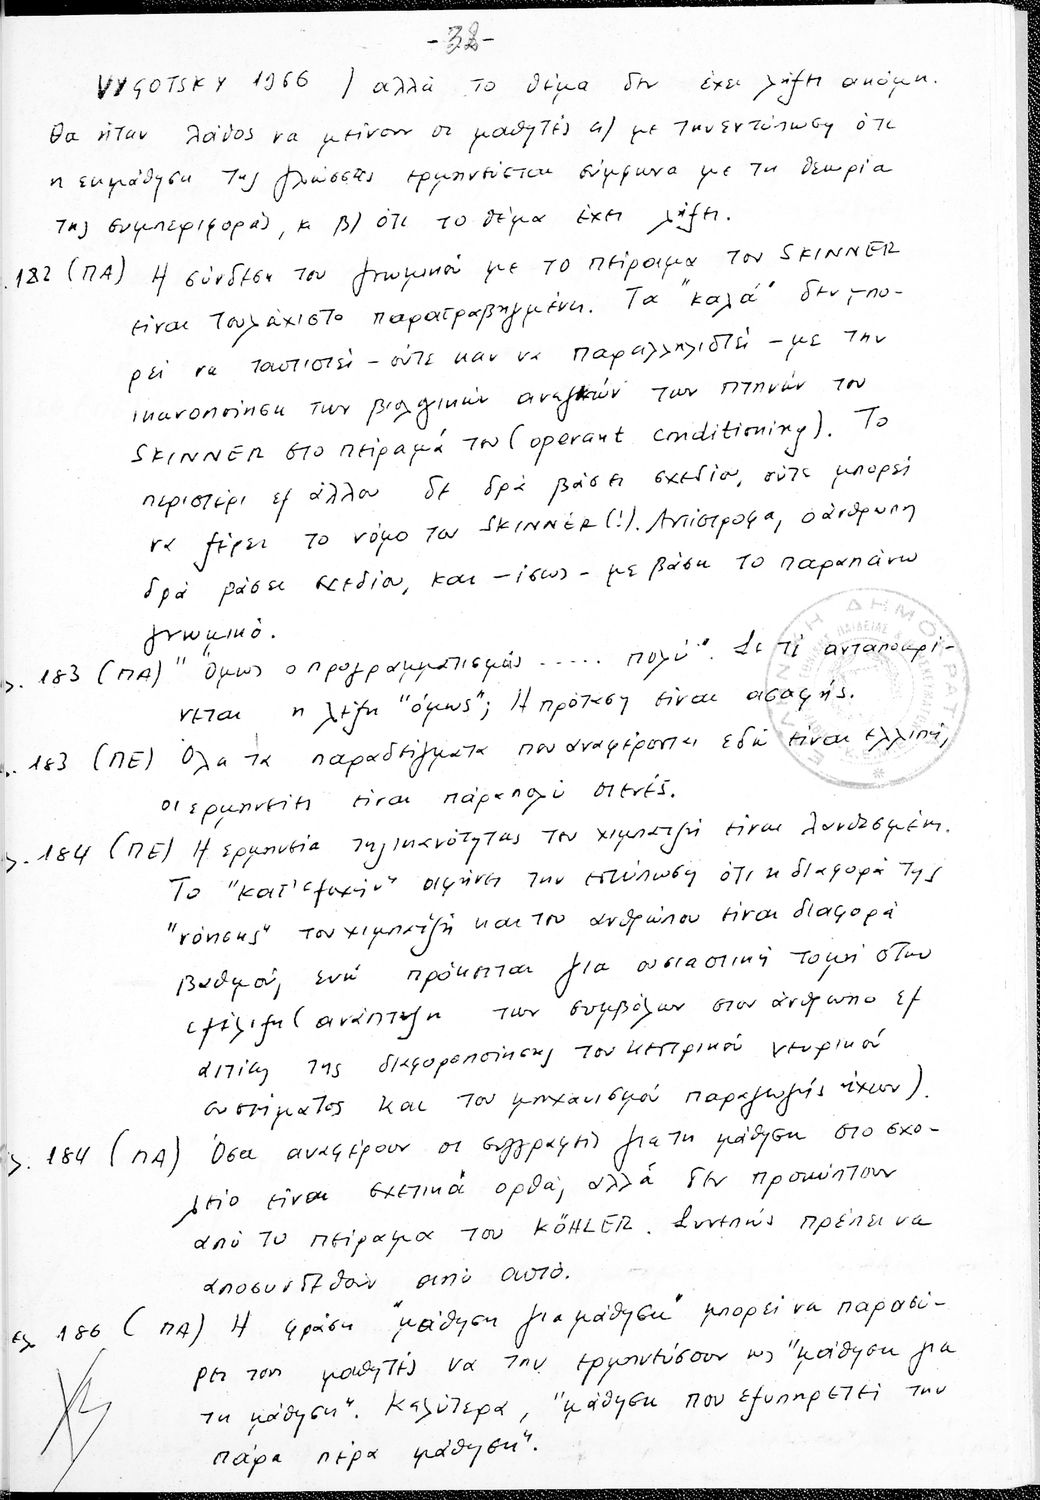 -32-
VYGOTSKY 1966) αλλά το θέμα δεν έχει λήξει ακόμη.
Θα ήταν λάθος να μείνουν οι μαθητές α) με την εντύπωση ότι
η εκμάθηση της γλώσσας ερμηνεύεται σύμφωνα με τη θεωρία
της συμπεριφοράς, κ β) ότι το θέμα έχει λήξει.
182 (ΠΑ) Η σύνδεση του γνωμικού με το πείραμα του SKINNER
είναι τουλάχιστο παρατραβηγμένη. Τα "καλά" δεν μπο-
ρεί να ταυτιστεί - ούτε καν να παραλληλιστεί - με την
ικανοποίηση των βιολογικών αναγκών των πτηνών του
SKINNER στο πείραμά του (operant conditioning). Το
περιστέρι εξ άλλου δε δρα βάσει σχεδίου, ούτε μπορεί
να ξέρει το νόμο του SKINNER (!). Αντίστροφα, ο άνθρωπος
δρα βάσει σχεδίου, και - ίσως - με βάση το παραπάνω
γνωμικό.
λ. 183 (ΠΑ) "Όμως ο προγραμματισμός ..... πολύ". Σε τί ανταποκρί-
νεται η λέξη "όμως"; Η πρόταση είναι ασαφής.
183 (ΠΕ) Όλα τα παραδείγματα που αναφέρονται εδώ είναι ελλιπή,
οι ερμηνείες είναι πάρα πολύ στενές.
λ. 184 (ΠΕ) Η ερμηνεία της ικανότητας του χιμπατζή είναι λανθασμένη.
Το "κατ' εξοχήν" αφήνει την εντύπωση ότι η διαφορά της
"νόησης" του χιμπατζή και του ανθρώπου είναι διαφορά
βαθμού, ενώ πρόκειται για ουσιαστική τομή στην
εξέλιξη (ανάπτυξη των συμβόλων στον άνθρωπο εξ
αιτίας της διαφοροποίησης του κεντρικού νευρικού
συστήματος και του μηχανισμού παραγωγής ήχων).
λ. 184 (ΠΑ) Όσα αναφέρουν οι συγγραφείς για τη μάθηση στο σχο-
λείο είναι σχετικά ορθά, αλλά δεν προκύπτουν
από το πείραμα του KÖHLER. Συνεπώς πρέπει να
αποσυνδεθούν από αυτό.
σλ 186 (ΠΑ) Η φράση "μάθηση για μάθηση" μπορεί να παρασύ-
ρει τους μαθητές να την ερμηνεύσουν ως "μάθηση για
τη μάθηση". Καλύτερα, "μάθηση που εξυπηρετεί την
πάρα πέρα μάθηση".